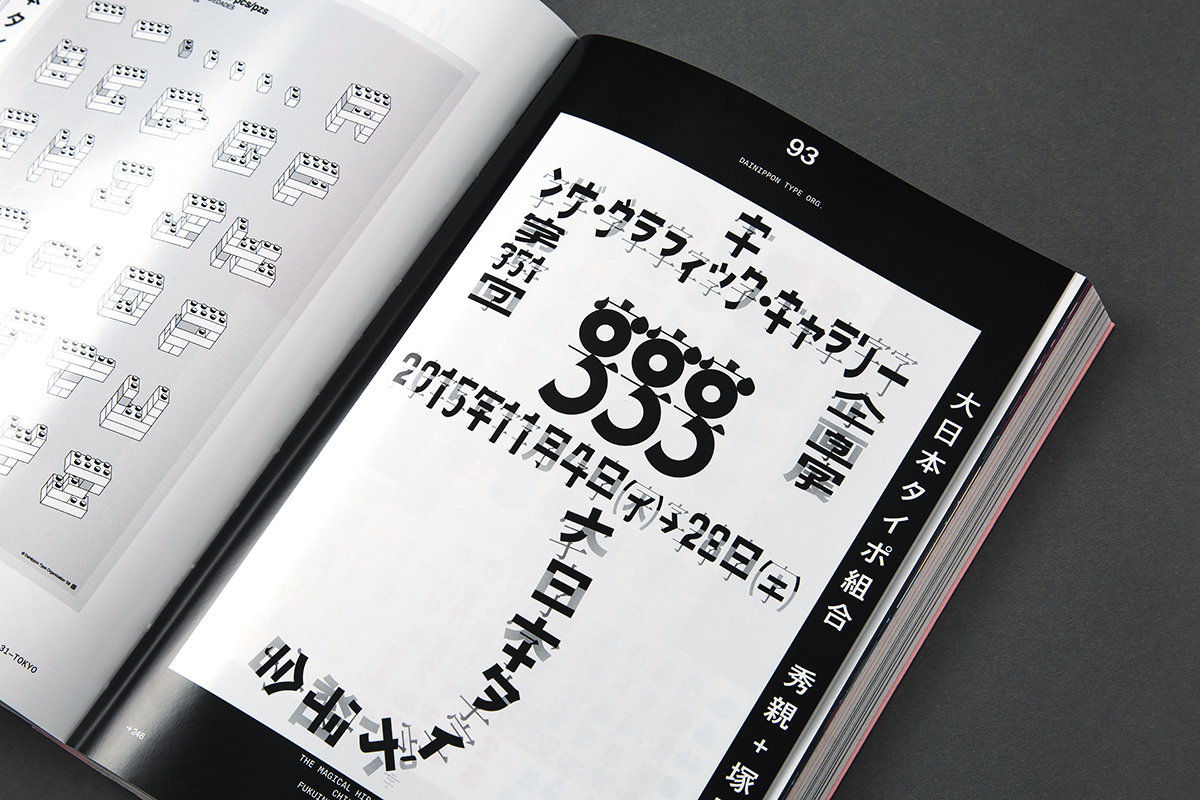 pcs/pzs
31–TOKYO
93
DAINIPPON TYPE ORG.
字
ンヴ・グラフィック・ギャラリー
企画展
第351回
ggg
2015年11月4日(水)→28日(土)
大日本タイポ組合
大日本タイポ組合 秀親+塚
→246
THE MAGICAL HIR
CHI
FUKUIN